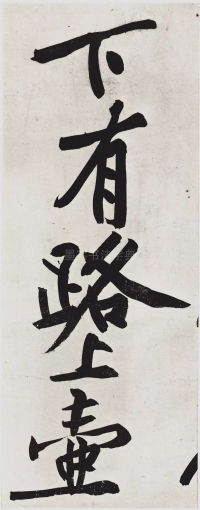 下有路上壷